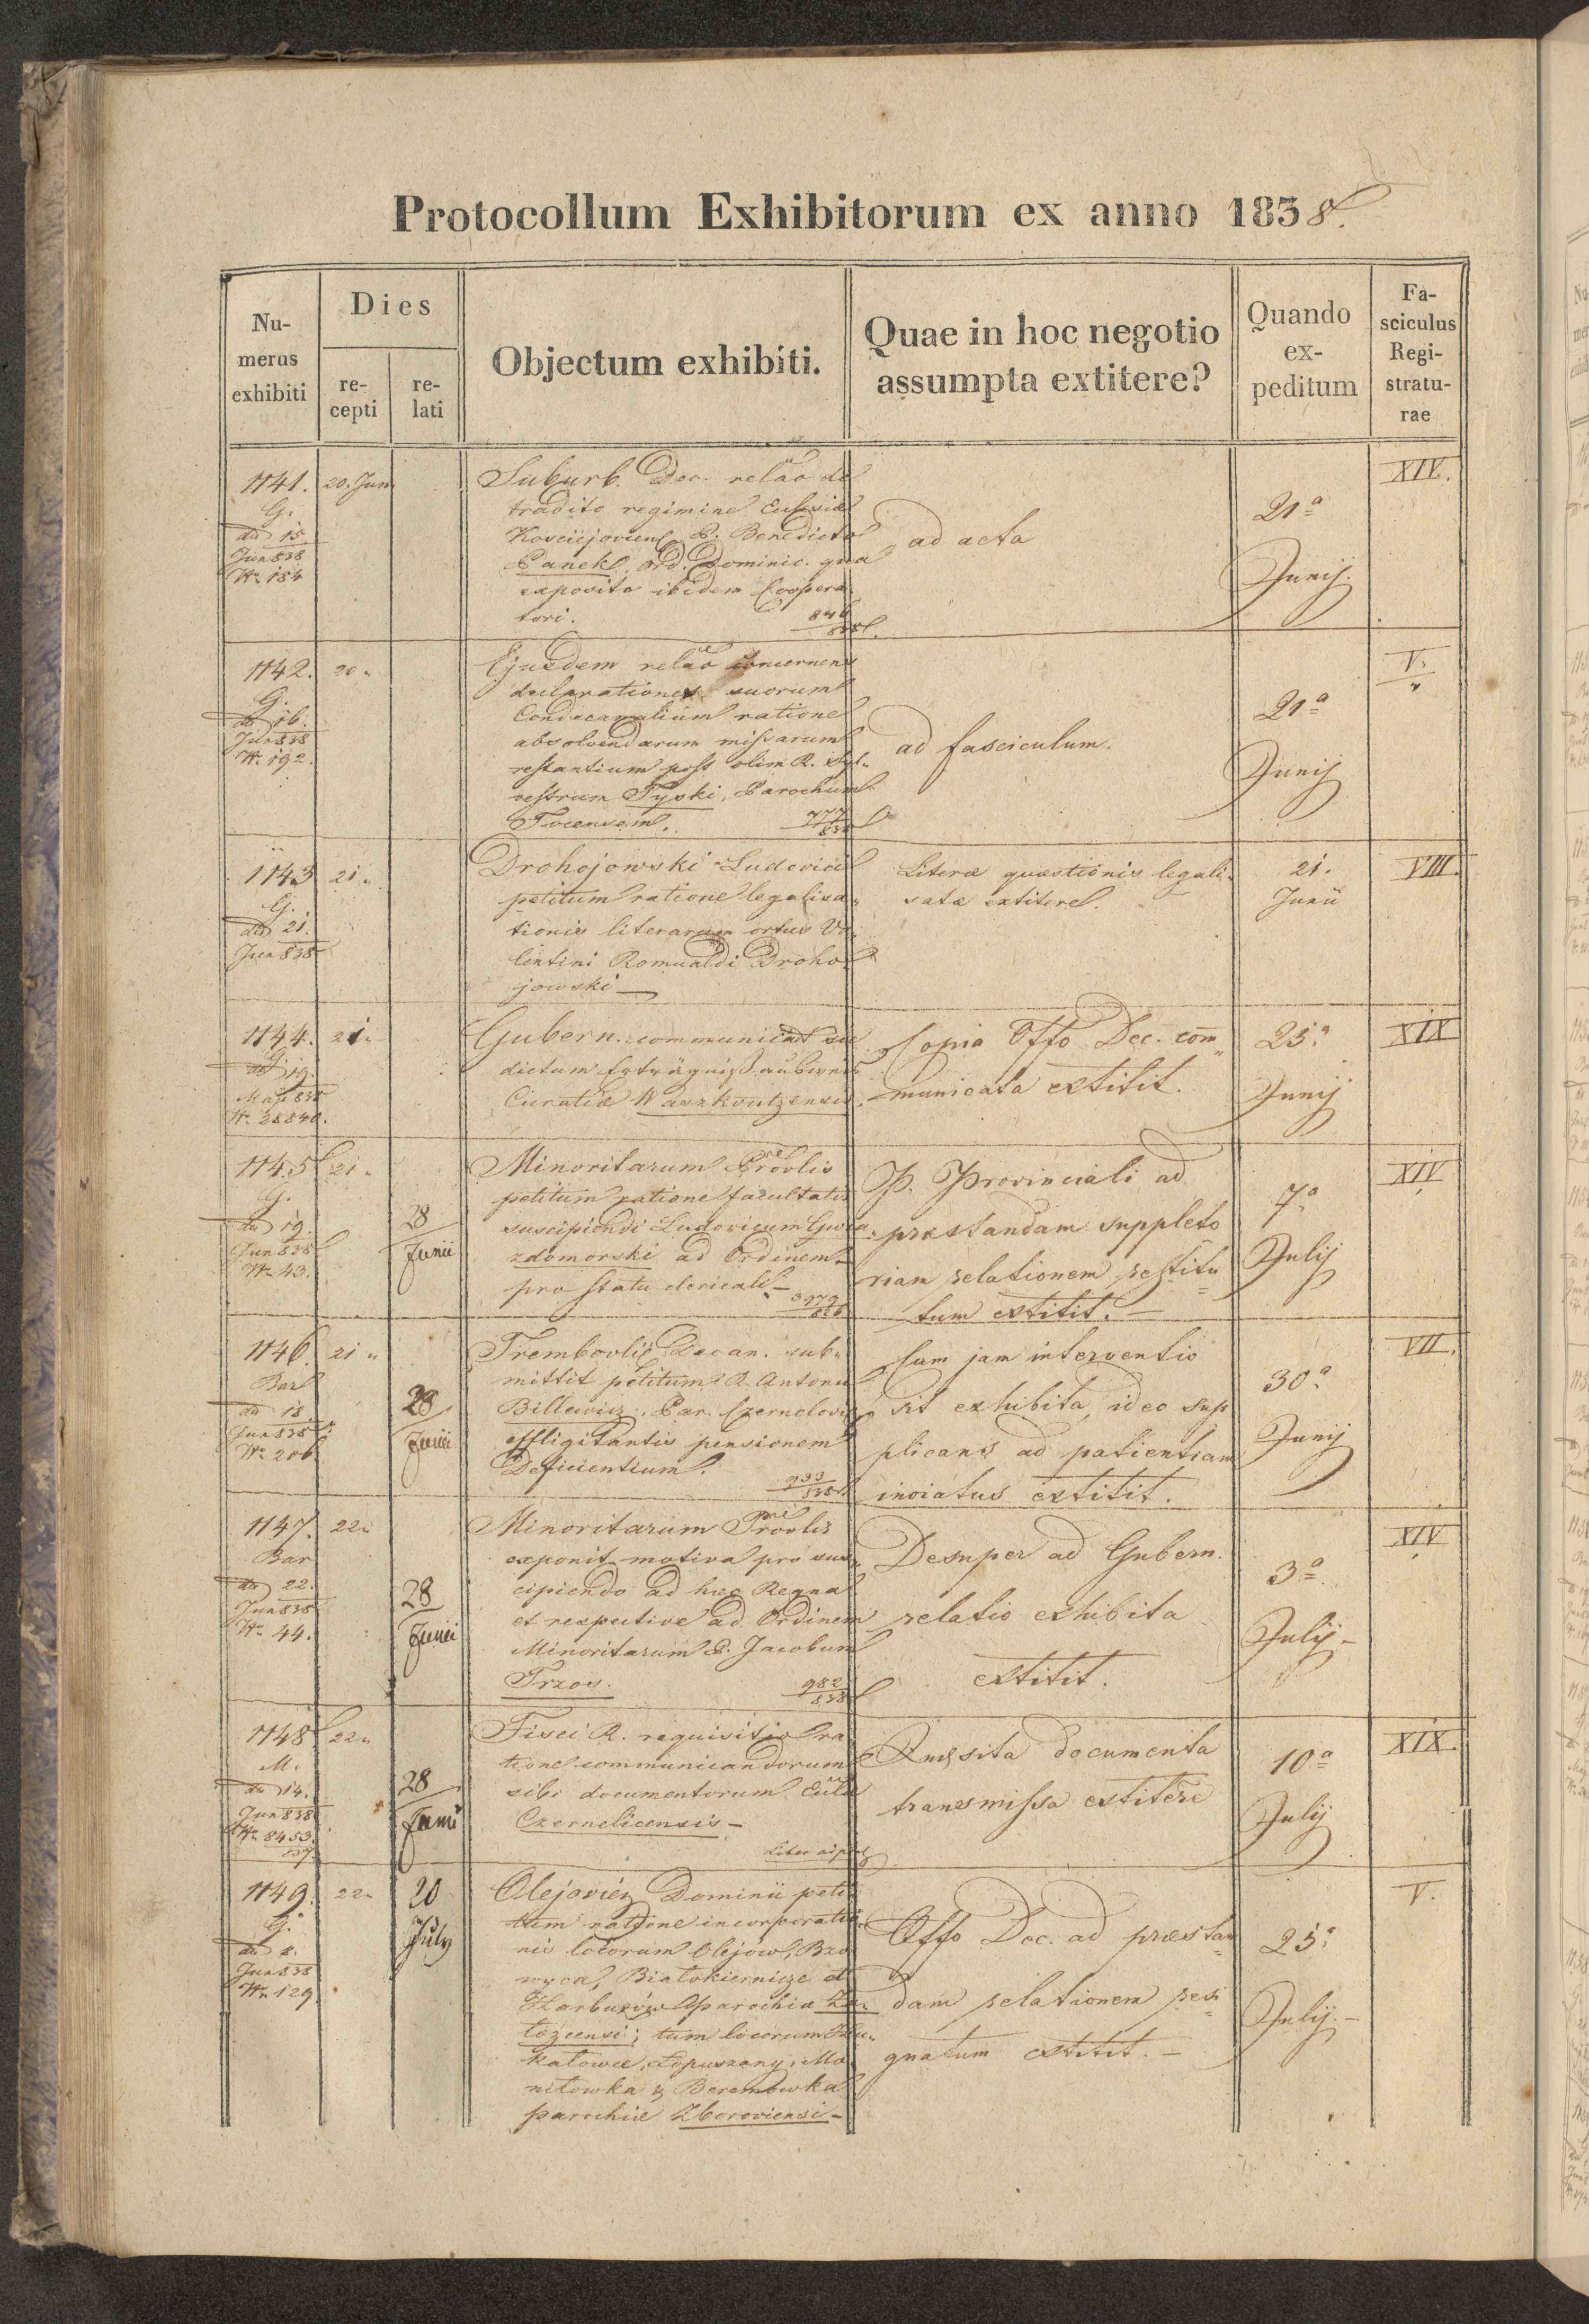 Protocollum Exhibitorum ex anno 1838.
Numerus exhibiti
Dies
recepti
relati
Objectum exhibiti.
Quae in hoc negotio assumpta extitere?
Quando expeditum
Fasciculus Registraturae
1141.
G.
dd 15
Jun 838
Nr. 184
20. Jun
Suburb. Dec. relāō de
tradito regimine Ecclesiæ
P. Benedicto
Panek, Ord. Dominic. qua
exposito ibidem Coopera-
tori.
846
838.
ad acta
21ª
Junij.
XIV.
1142.
G.
dd 16.
Jun 838
Nr. 192.
20 „
Ejusdem relāō concernens
declarationes suorum
Condecanalium ratione
absolvendarum missarum
restantium post olim R. Syl-
vestrum Tyski, Parochum
777
838
ad fasciculum.
21ª
Junij
V.
1143
G.
dd 21.
Jun 838
21 „
Drohojowski Ludovici
petitum ratione legalisa-
tionis literarum ortus Va-
lentini Romualdi Droho-
jowski —
Literæ quæstionis legali-
satæ extitere.
21.
Junii
VIII.
1144.
G.
dd 19.
Maji 838
Nr. 28840.
21 „
Gubern. communicat
dictum
Curatiæ Waszkoutzensis.
Copia Offo Dec. com-
municata extitit.
25ª
Junij
XIX
1145
G.
dd 19.
Jun 838
Nr. 43.
21 „
28
Junii
Minoritarum Provlis
petitum ratione facultatis
suscipiendi Ludovicum Gwia-
zdomorski ad Ordinem
pro statu clericali —
P. Provinciali ad
præstandam suppleto
riam relationem restitu
tum extitit. —
7ª
Julij
XIV
1146.
Bar
dd 18
Jun 838
Nr. 206
21 „
28
Junii
Trembovlię Decan. sub-
mittit petitum R. Antonii
Billewicz, Par.
efflagitantis pensionem
Deficientium.
933
838
Cum jam interventio
sit exhibita, ideo sup
plicans ad patientiam
inviatus extitit.
30ª
Junij
VII.
1147.
Bar
dd 22.
Jun 838
Nr. 44.
22 „
28
Junii
Minoritarum Provlis
exponit motiva pro sus-
cipiendo ad hæc Regna
et respective ad Ordinem
Minoritarum P. Jacobum
Trzos.
982
838
Desuper ad Gubern.
relatio exhibita
extitit.
3ª
Julij —
XIV
1148
M.
dd 14.
Jun 838
Nr. 8453
837.
22 „
28
Junii
Fisci R. requisitio ra
tione communicandorum
sibi documentorum
Czernelicensis —
Quæsita documenta
transmissa extitere
10ª
Julij
XIX.
1149.
G.
dd 8.
Jun 838
Nr. 129.
22 „
20
July
Olejoviens Dominii peti
tum ratione incorporatio-
nis locorum Olejów, Bzo
wyca, Białokiernicze et
Harbuzów parochiæ Za-
łożcensi; tum locorum Hu-
kałowce, Łopuszany, Mo-
niłowka & Beremowka
parochiæ Zboroviensi —
Offo Dec. ad præstan
dam relationem resi
gnatum extitit. —
25ª
Julij. —
V.